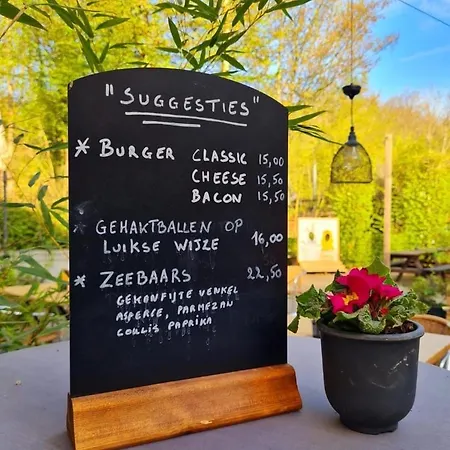 "SUGGESTIES"
* BURGER CLASSIC 15,00
CHEESE 15,50
BACON 15,50
* GEHAKTBALLEN OP
LUIKSE WIJZE 16,00
* ZEEBAARS 22,50
GEKONFIJTE VENKEL
ASPERGE, PARMEZAN
COULIS PAPRIKA